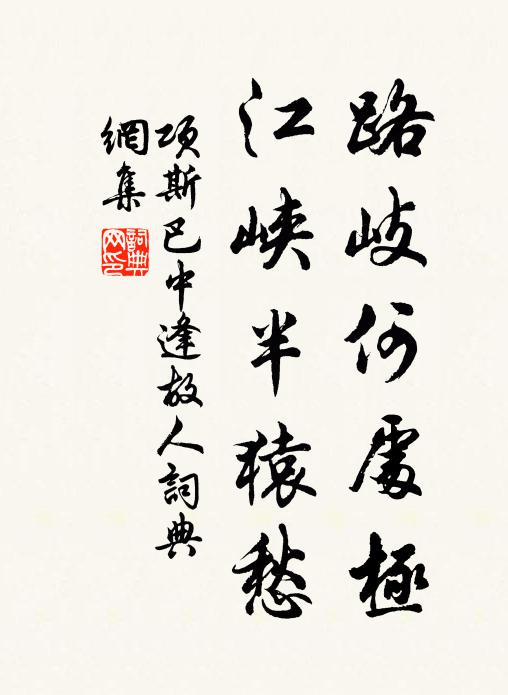 路岐何處極
江峽半猿愁
項斯巴中逢故人詞典
網集
詞典網印